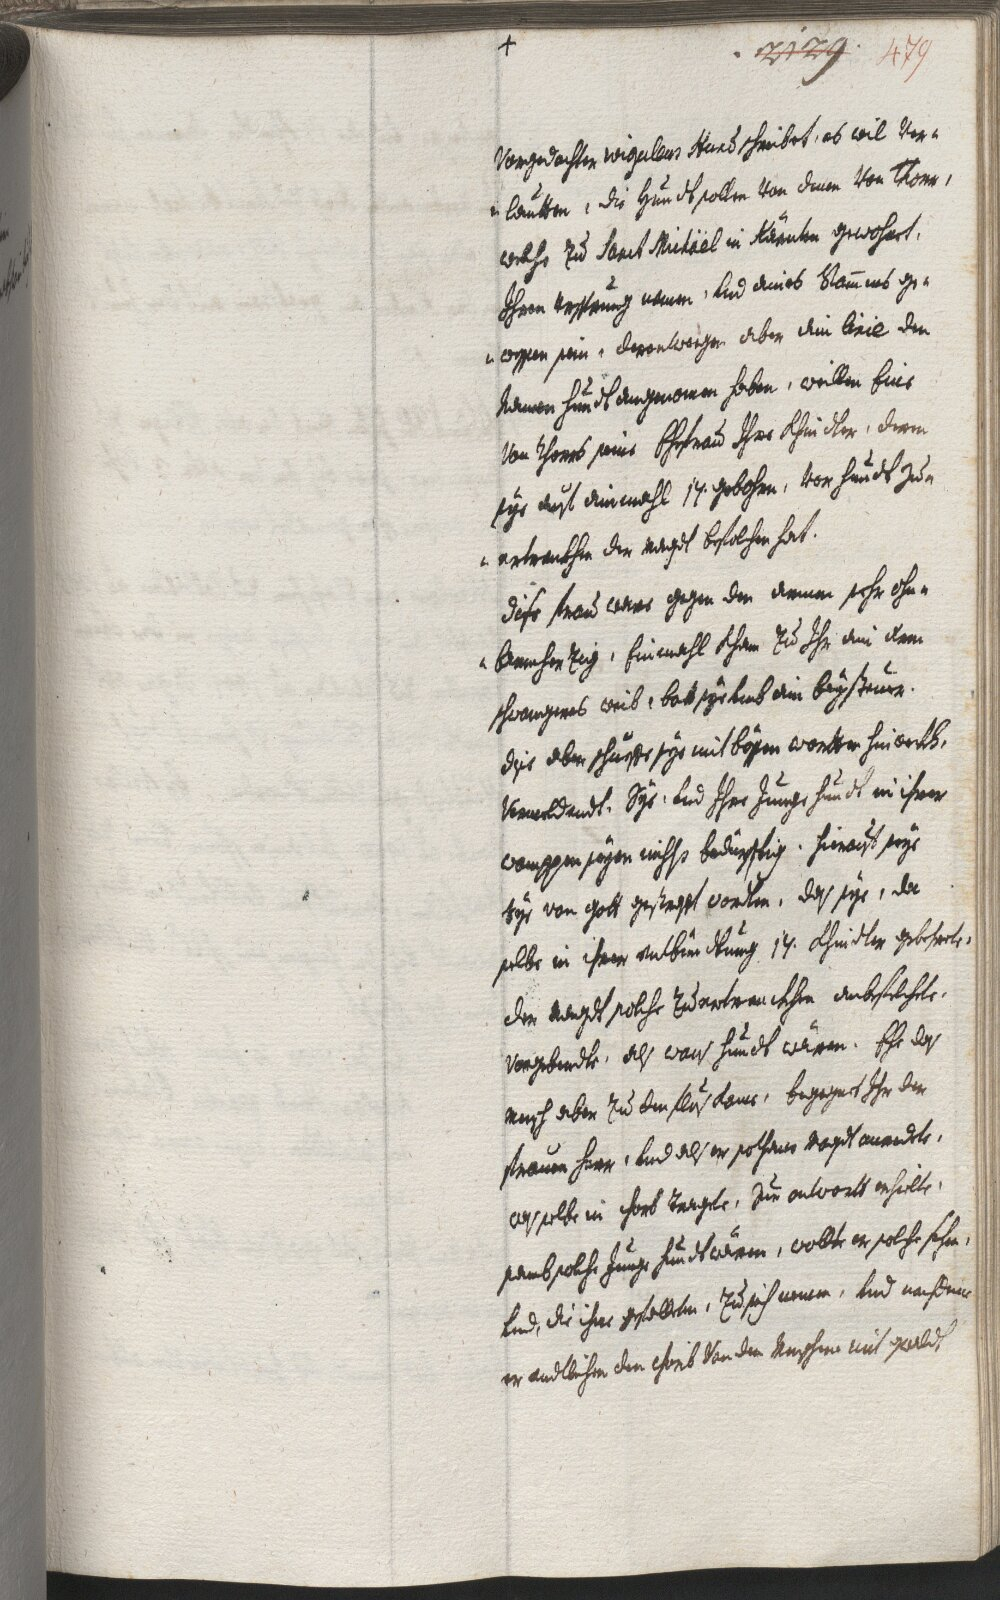 +
2129 479
Vorgedachter Wiguleus Hund schreibet, es wil Ver=
=lautten, die Hundt sollen von denen von Thorr,
welche zu Sanct Michäel in Kärnten gewohnt,
Ihren Ursprung nemen, und aines Stammens ge=
=wesen sein, derentwegen aber ain linie den
Namen Hundt angenomen haben, weillen Eins
von Thorrs seine Ehefrau Ihre Khindter, deren
sye auf ainmahl 14. gebohren, vor Hundt zu=
=ertrenkhen der Magdt befolchen hat.
Dise frau ware gegen den armen sehr ohn=
=barmherzig, Einmahl kham zu Ihr ain arm
schwangeres weib, batt sye umb ain beysteuer.
Dise aber schueffe sye mit bösen wortten hinwekh,
Vermeldendt. Sye, und Ihre Junge Hundt in ihrem
wamppen seyen nichts bedürfftig. Hierauf seye
sye von Gott gestrafft worden, das sye, da
selbe in ihrer entbündtung 14. Khindter gebehrte,
der Magdt solche zu ertrenckhen anbefelchte,
Vorgebendte, als wans Hundt wären. Ehe das
Mensch aber zu dem flus kame, begegnet Ihr der
frauen Herr, und als er sothane Magdt anredete,
was selbe in Korb tragete, zur antwortt erhielte,
samb solche Junge Hundt wären, wollte er solche sehen,
und, die ihme gefallten, zu sich nemen, und nachdeme
er endtlichen den Korb von dem Menschen mit gwaldt